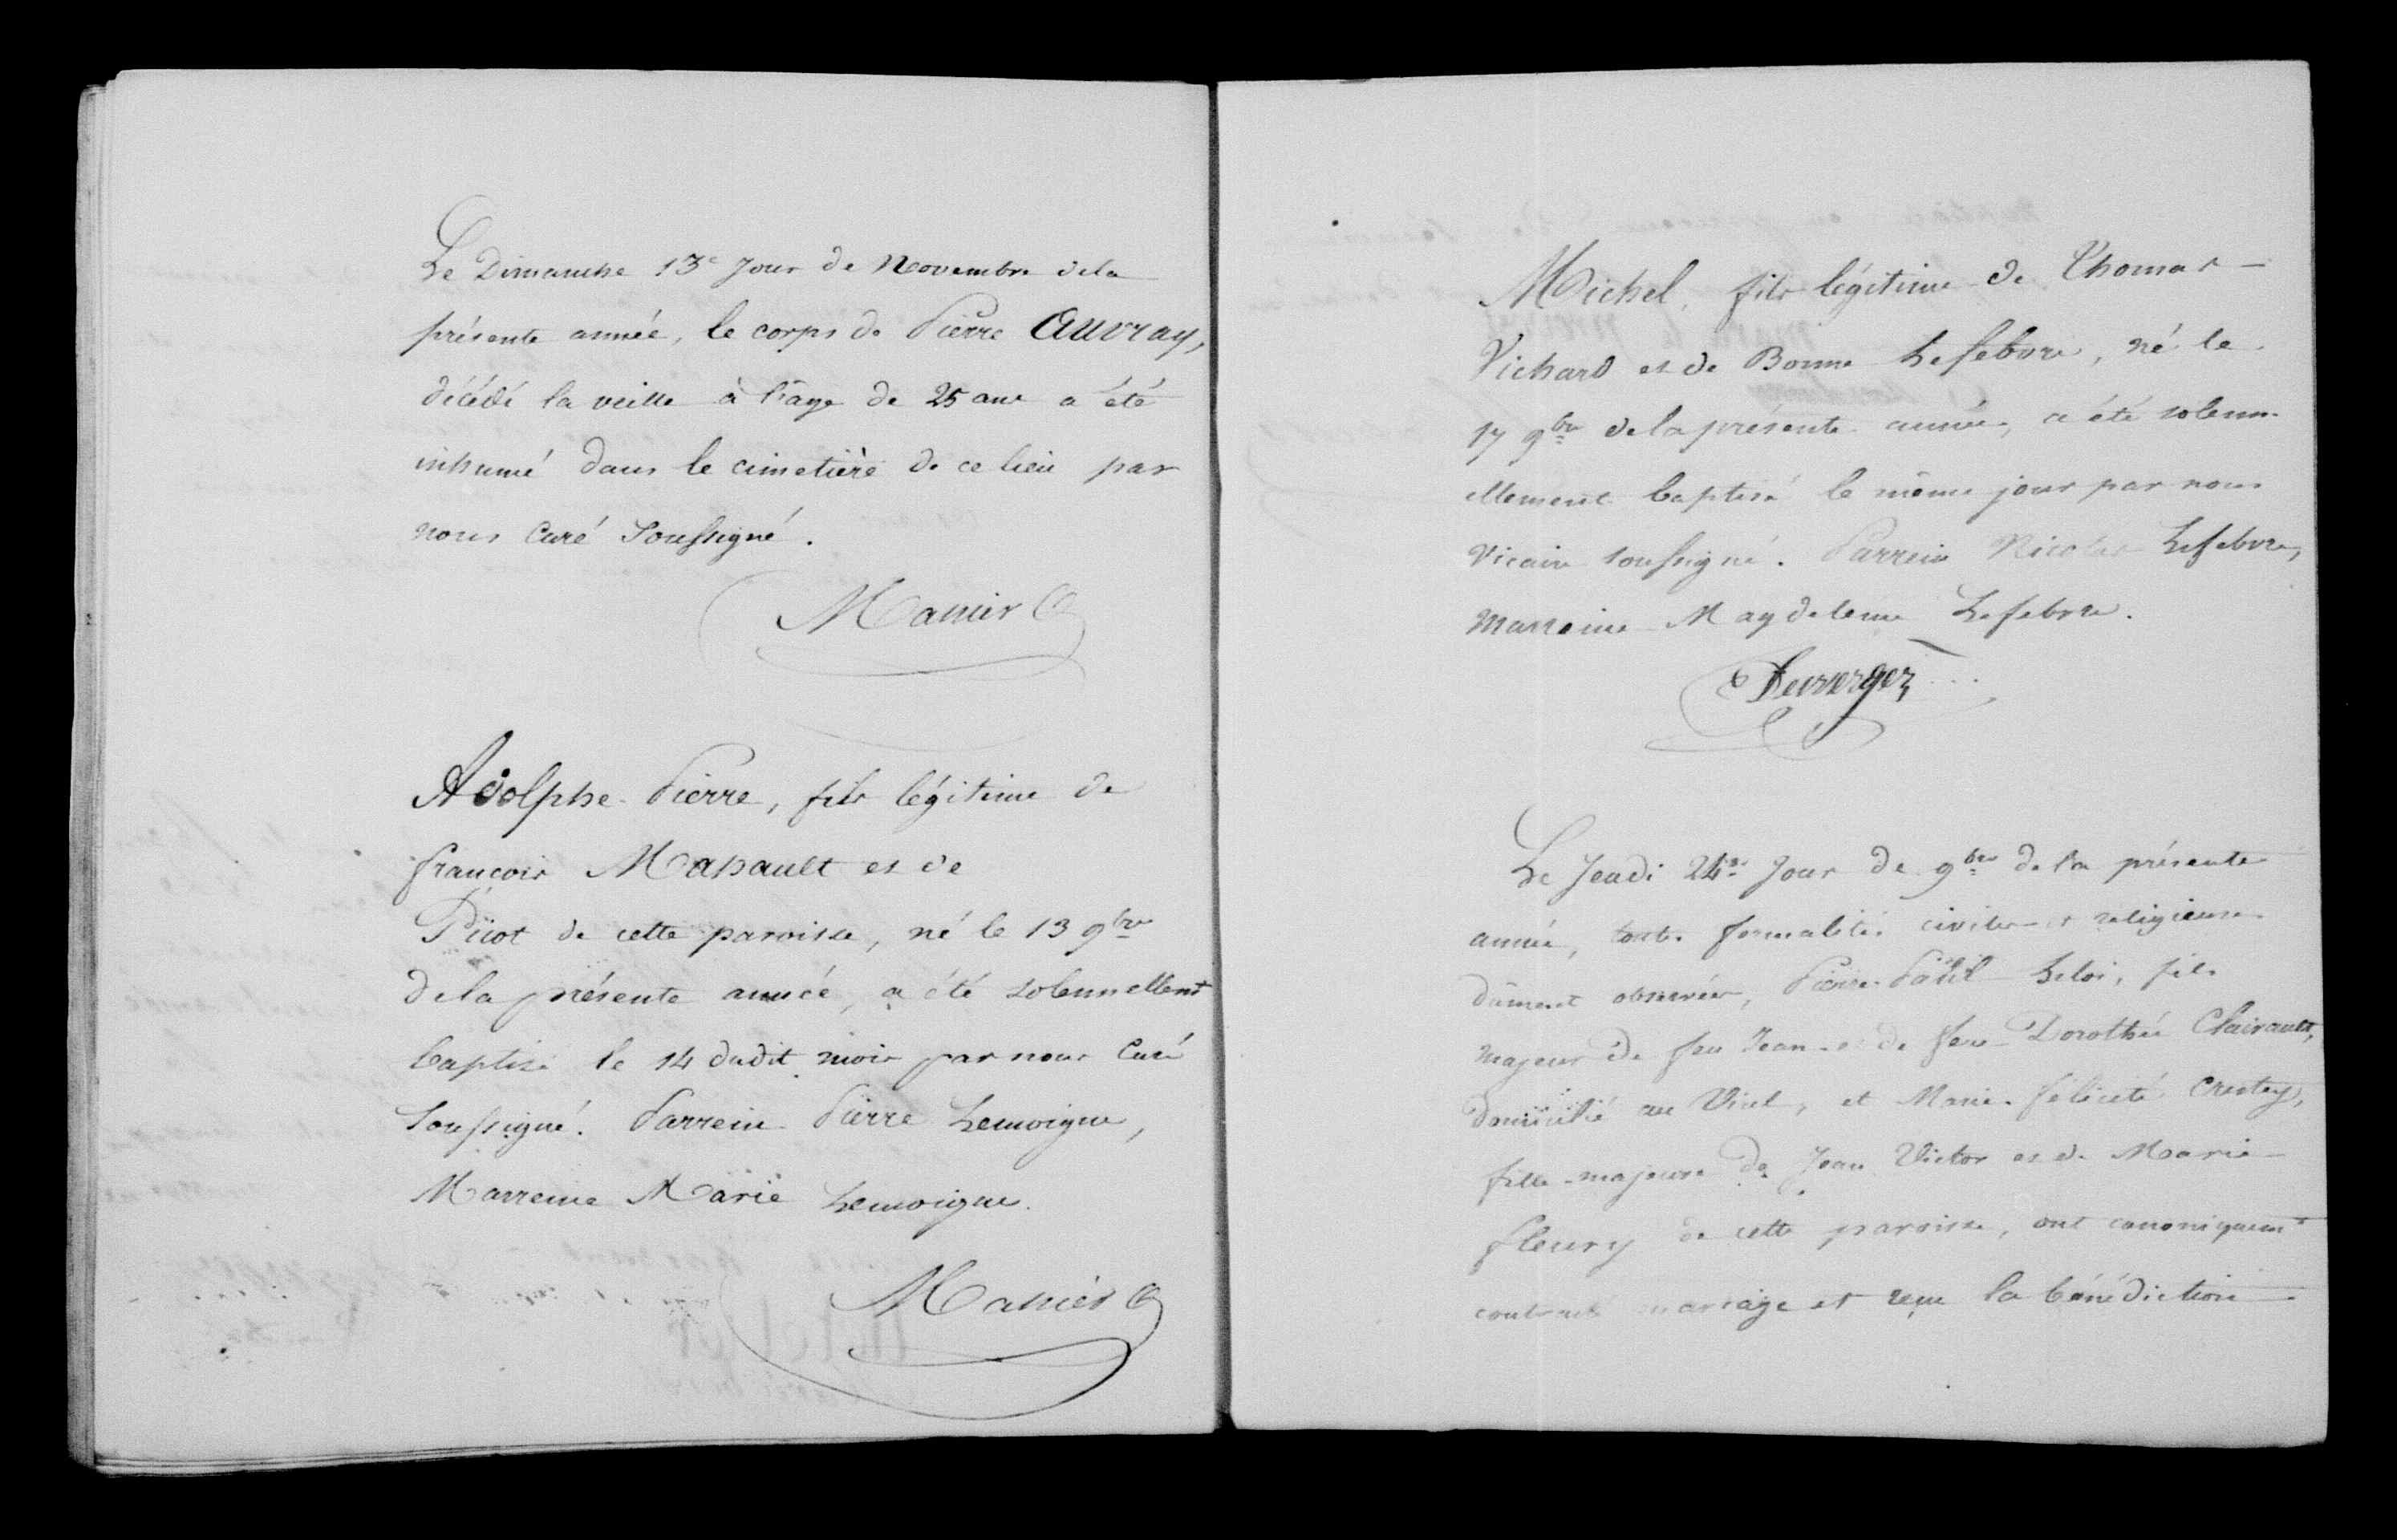 Le Dimanche 13e Jour de Novembre dela
présente année, le corps de Pierre Auvray,
décédé la veille à l'âge de 25 ans a été
inhumé dans le cimetière de ce lieu par
nous Curé Soussigné.
Manier
Adolphe-Pierre, fils légitime de
françois Mahault et de
Picot de cette paroisse, né le 13 9bre
dela présente année, a été solennellemt
baptisé le 14 dudit mois par nous Curé
Soussigné. Parrein Pierre Lemoigne,
Marreine Marie Lemoigne.
Manier
Michel, fils légitime de Thomas
Vichard et de Bonne Lefebvre, né le
17 9bre dela présente année, a été solenn-
ellement baptisé le même jour par nous
Vicaire soussigné. Parrein Nicolas Lefebvre,
marreine Magdeleine Lefebvre.
Le Jeudi 24e Jour de 9bre de la présente
année, toutes formalités civiles et religieuses
dûment observées, Pierre-Paul Leloi, fils
majeur de feu Jean et de feue Dorothée Clairault,
domicilié au Vicel, et Marie-félicité Crestey,
fille majeure de Jean Victor et de Marie
fleury de cette paroisse, ont canoniquemt
contracté mariage et reçu la bénédiction